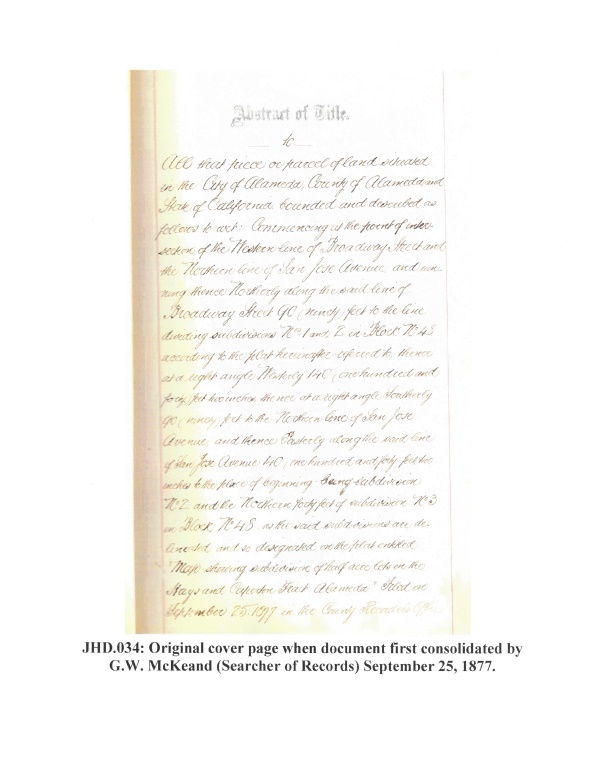 Abstract of Title.
to
All that piece or parcel of land situated
in the City of Alameda, County of Alameda, and
State of California bounded and described as
follows to wit: Commencing at the point of inter-
section of the Western line of Broadway Street and
the Northern line of San Jose Avenue, and run-
ning thence Northerly along the said line of
Broadway Street 90 (ninety) feet to the line
dividing subdivisions No 1 and 2 in Block No 48
according to the plat hereinafter referred to thence
at a right angle Westerly 140 (one hundred and
forty) feet two inches thence at a right angle Southerly
90 (ninety) feet to the Northern line of San Jose
Avenue, and thence Easterly along the said line
of San Jose Avenue 140 (one hundred and forty) feet two
inches to the place of beginning being subdivision
No 2 and the Northern forty feet of subdivision No 3
in Block No 48 as the said subdivisions are de-
lineated and so designated on the plat entitled
"Map showing subdivision of half acre lots in the
Hays and Caperton Tract Alameda" Filed in
September 25, 1877 in the County Recorders
JHD.034: Original cover page when document first consolidated by
G.W. McKeand (Searcher of Records) September 25, 1877.